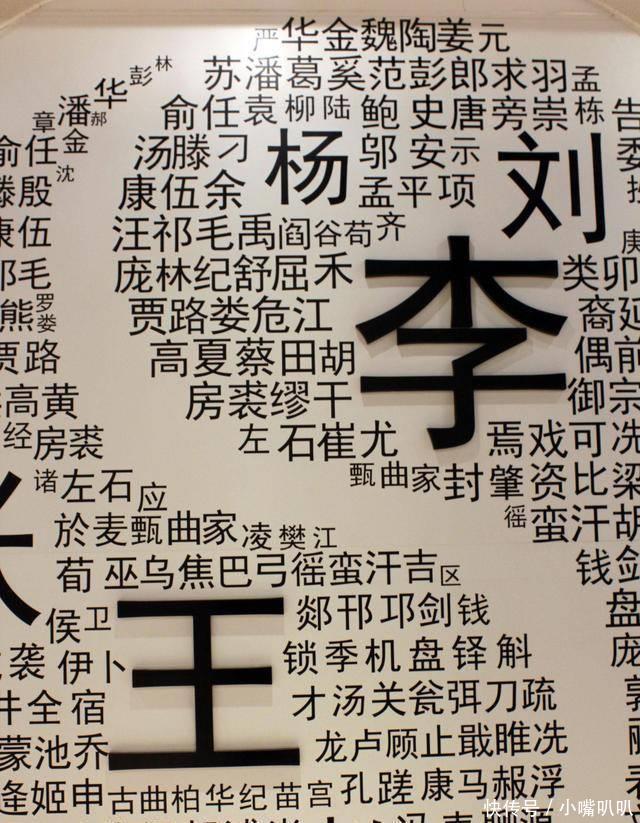 严华金魏陶姜元
林
彭
苏潘葛奚范彭郎求羽孟
华
潘郝
俞任袁柳陆鲍史唐旁崇栋
章金
告
俞任
汤滕刁
杨
邬安示
刘
委
沈
滕殷
康伍余
孟平项
康伍
汪祁毛禹阎谷苟齐
庚
毛
庞林纪舒屈禾
李
类卯
熊罗娄
贾路娄危江
裔延
贾路
高夏蔡田胡
偶前
高黄
房裘缪干
御宗
经房裘
左石崔尤
焉戏可冼
诸左石应
甄曲家封肇资比梁
於麦甄曲家凌樊江
徭蛮汗胡
荀巫乌焦巴弓徭蛮汗吉区
钱剑
侯卫
王
郯邗邛剑钱
盘
袭伊卜
锁季机盘铎斛
庞
井全宿
才汤关瓮弭刀疏
郭
蒙池乔
龙卢顾止戢睢冼
逄姬申古曲柏华纪苗宫孔蹉康马赧浮
快传号／小嘴叭叭